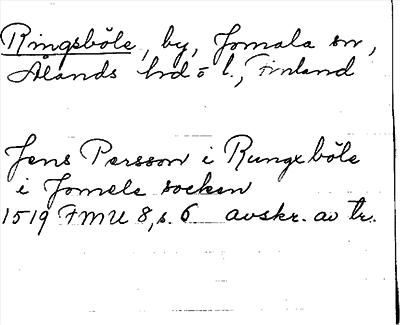 Ringsböle, by, Jomala sn,
Ålands hd o l., Finland
Jens Persson i Rungxböle
i Jomele socken
1519 FMU 8, s. 6 avskr. av tr.